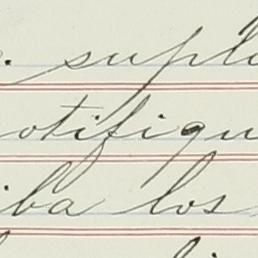 . suplu
otifiqu
iba los